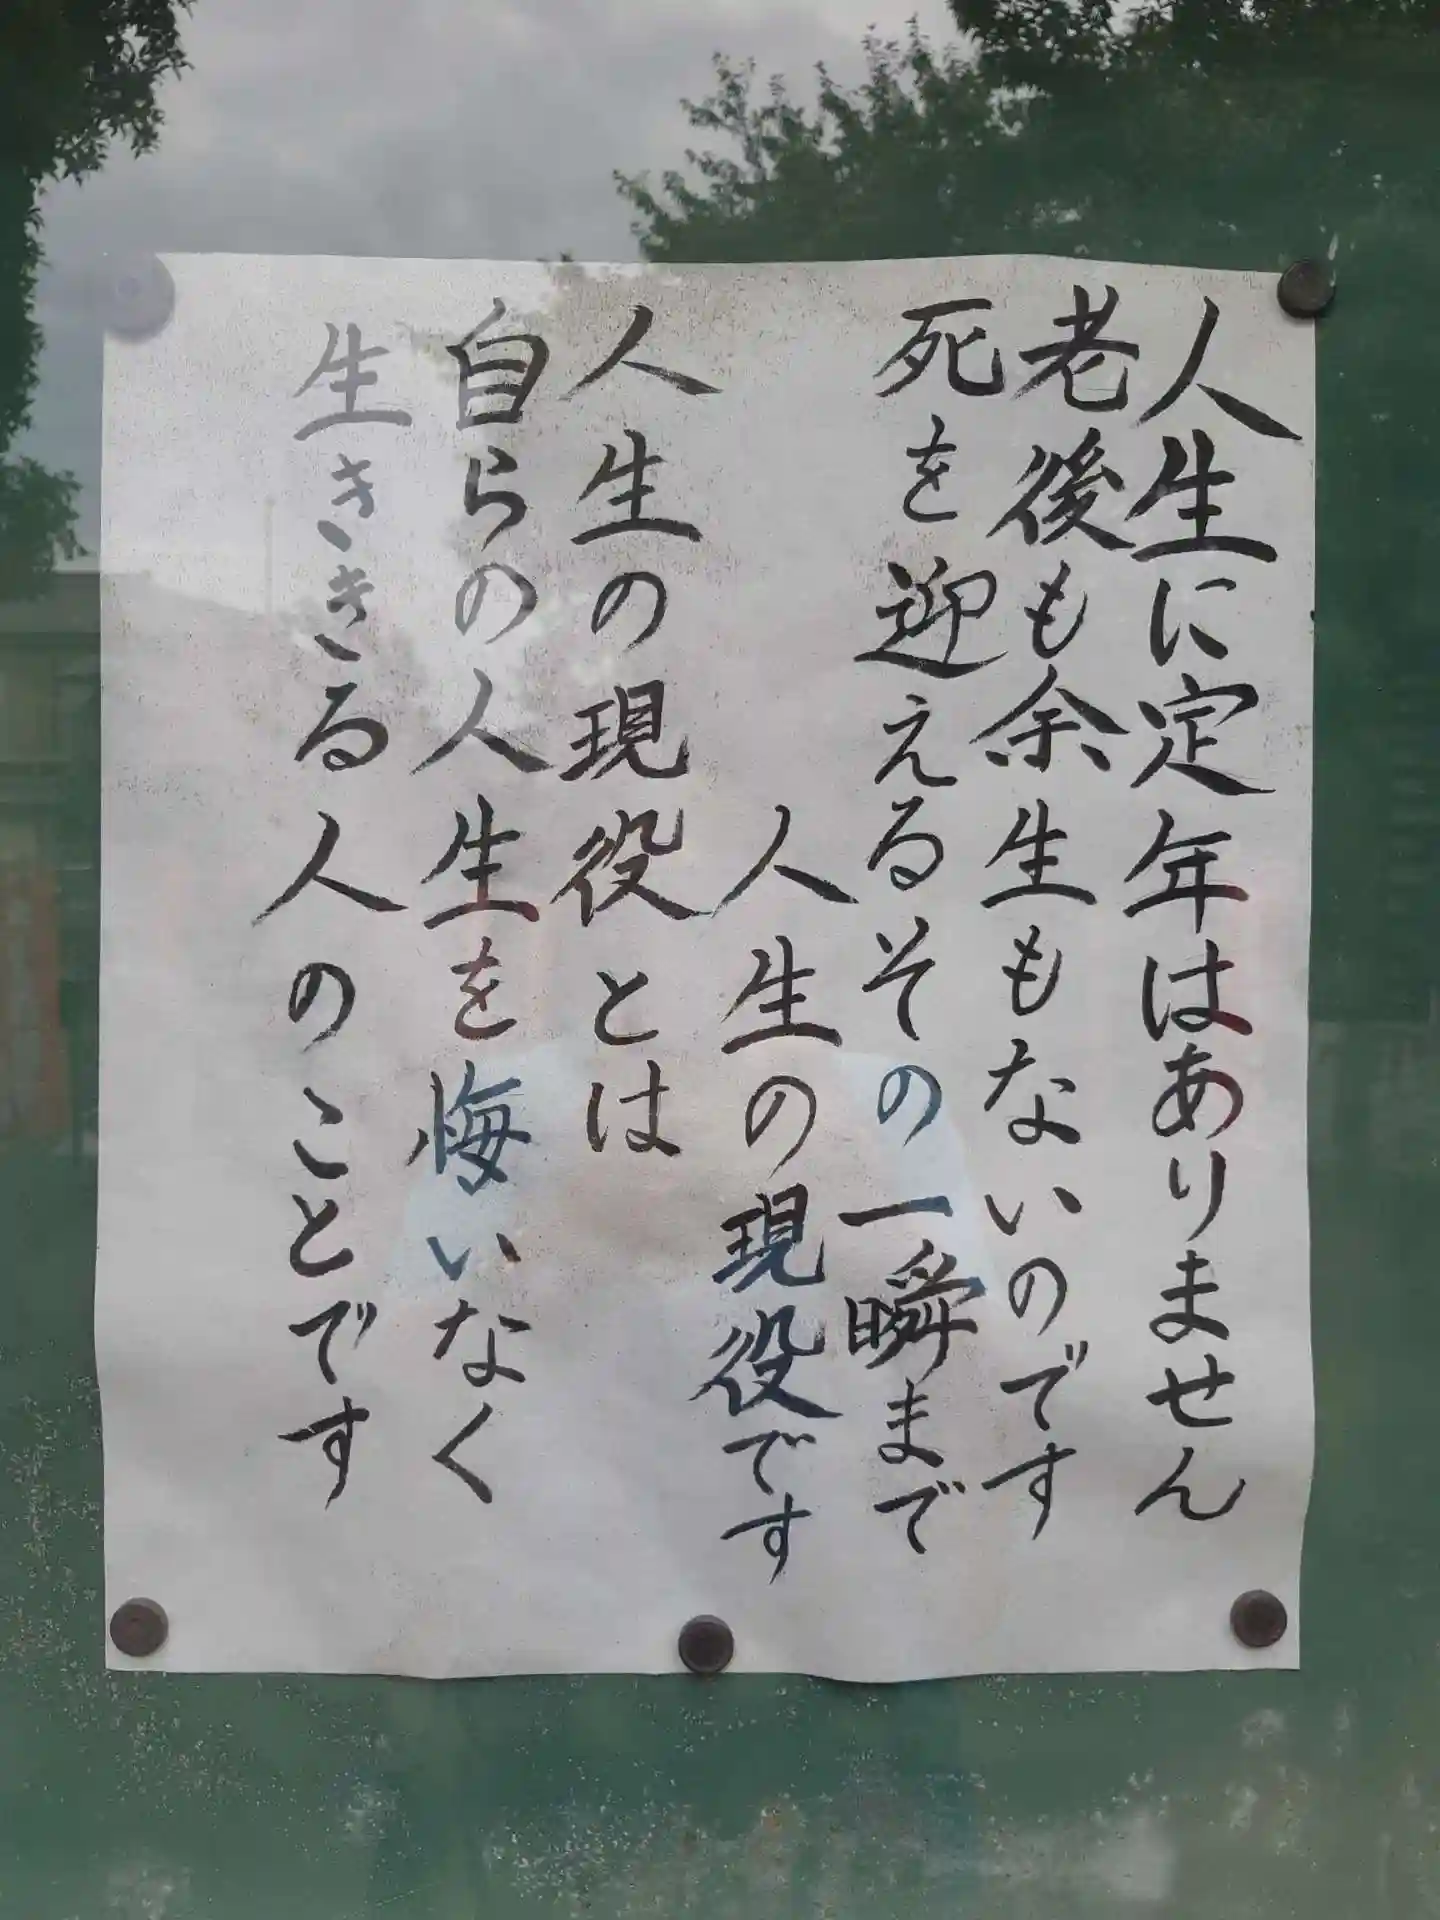 人生に定年はありません
老後も余生もないのです
死を迎えるその一瞬まで
人生の現役です
人生の現役とは
自らの人生を悔いなく
生ききる人のことです